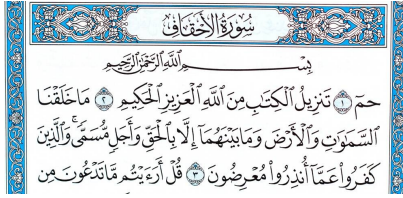 سُورَةُ الأَحْقَافِ
بِسْمِ ٱللَّهِ ٱلرَّحْمَٰنِ ٱلرَّحِيمِ
حمٓ ١ تَنزِيلُ ٱلْكِتَٰبِ مِنَ ٱللَّهِ ٱلْعَزِيزِ ٱلْحَكِيمِ ٢ مَا خَلَقْنَا
ٱلسَّمَٰوَٰتِ وَٱلْأَرْضَ وَمَا بَيْنَهُمَآ إِلَّا بِٱلْحَقِّ وَأَجَلٍ مُّسَمًّى ۚ وَٱلَّذِينَ
كَفَرُوا۟ عَمَّآ أُنذِرُوا۟ مُعْرِضُونَ ٣ قُلْ أَرَءَيْتُم مَّا تَدْعُونَ مِن